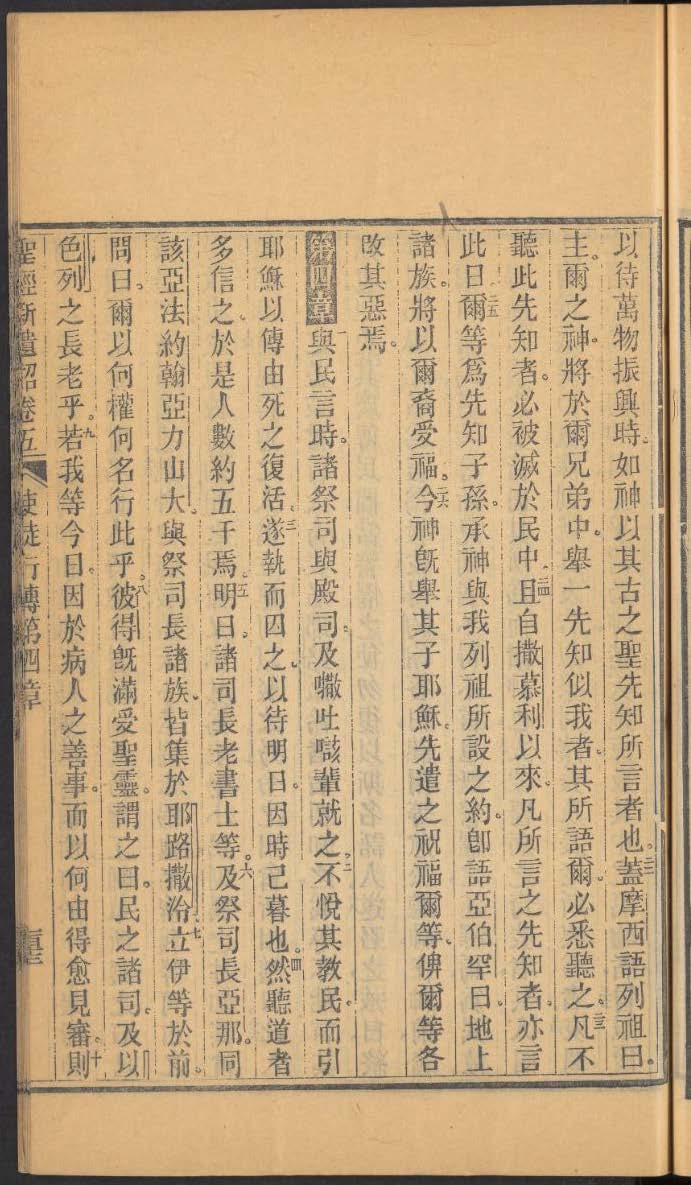 以待萬物振興時。如神以其古之聖先知所言者也。二二蓋摩西語列祖曰。
主爾之神。將於爾兄弟中。舉一先知似我者。其所語爾。必悉聽之。二三凡不
聽此先知者。必被滅於民中。二四且自撒慕利以來。凡所言之先知者。亦言
此日。二五爾等爲先知子孫。承神與我列祖所設之約。卽語亞伯罕曰。地上
諸族。將以爾裔受福。二六今神旣舉其子耶穌。先遣之祝福爾等。俾爾等各
改其惡焉。
第四章一與民言時。諸祭司與殿司。及𠹌吐㗒輩就之。二不悅其教民。而引
耶穌以傳由死之復活。三遂執而囚之。以待明日。因時已暮也。四然聽道者
多信之。於是人數約五千焉。五明日。諸司長老書士等。六及祭司長亞那。同
該亞法約翰亞力山大。與祭司長諸族。皆集於耶路撒冷。七立伊等於前。
問曰。爾以何權何名行此乎。八彼得旣滿受聖靈。謂之曰。民之諸司。及以
色列之長老乎。九若我等今日。因於病人之善事。而以何由得愈見審。十則
聖經新遺詔卷五 使徒行傳第四章